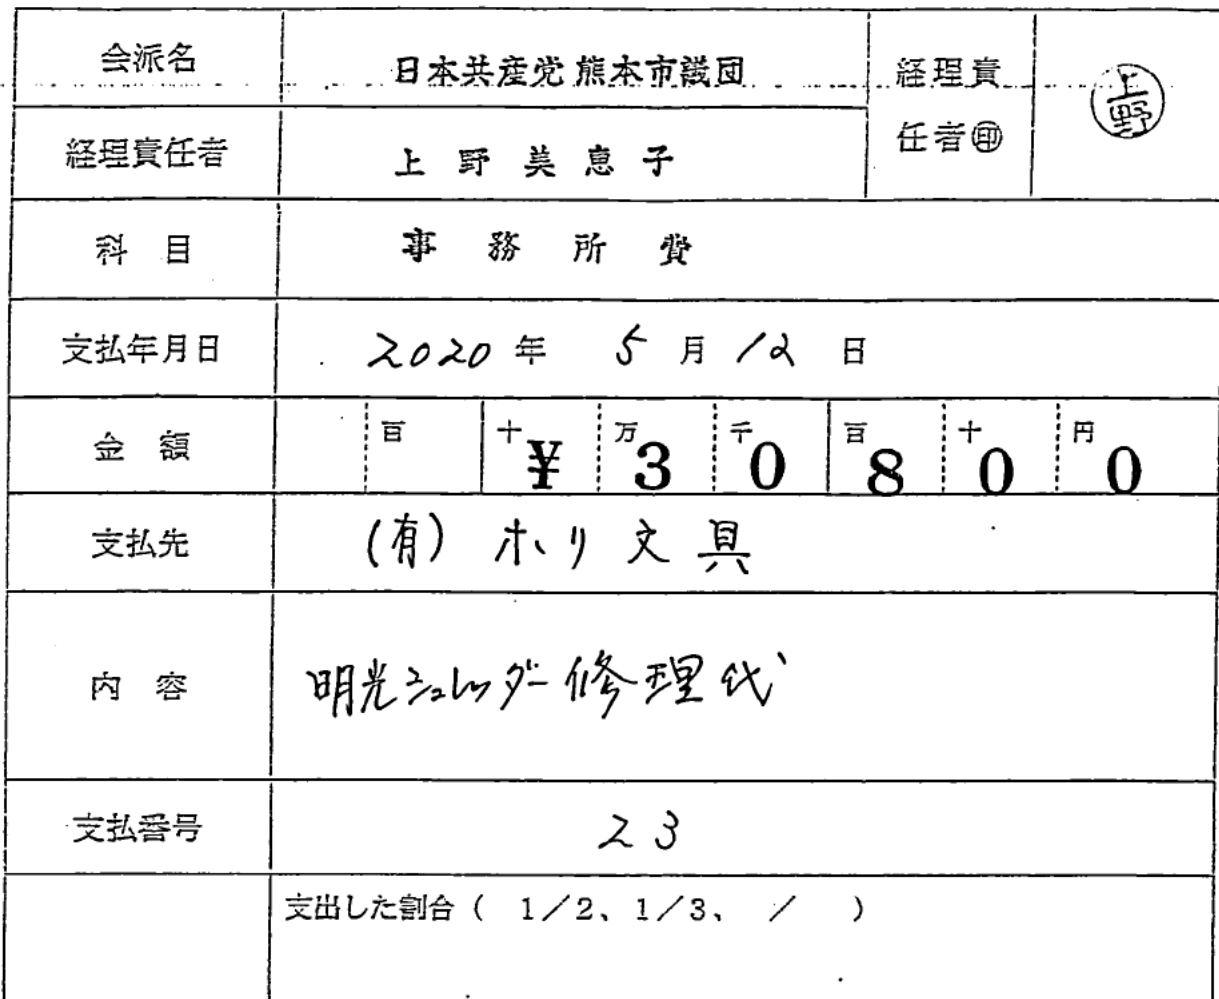 会派名 日本共産党熊本市議団 経理責任者㊞ 上野
経理責任者 上野美恵子
科目 事務所費
支払年月日 2020年 5月12日
金額 百 十 万 千 百 十 円
¥30800
支払先 (有)ホリ文具
内容 明光シュレッダー修理代
支払番号 23
支出した割合( 1/2、1/3、 / )